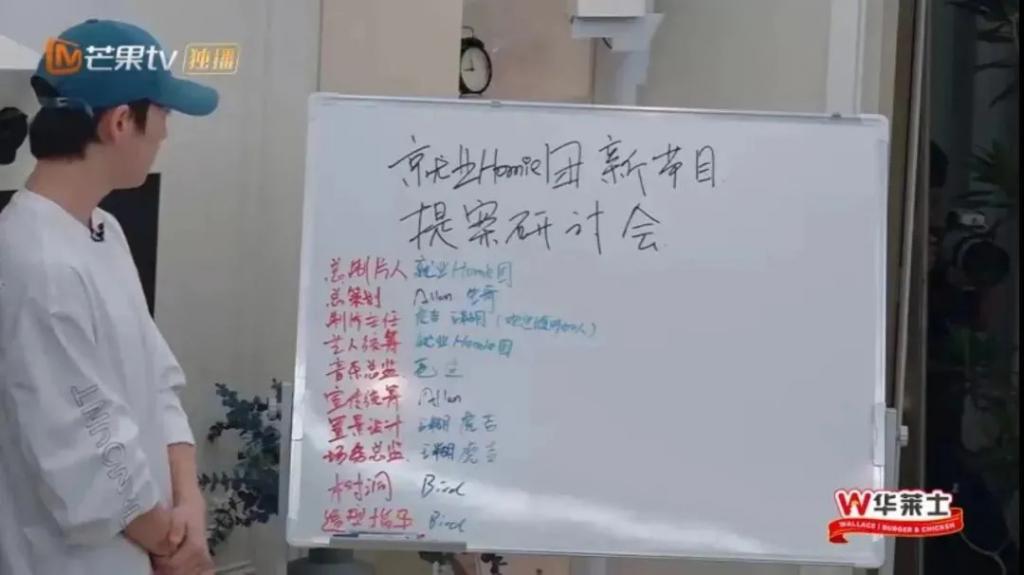 芒果tv 独播
就业Homie团新节目
提案研讨会
总制片人 就业Homie团
总策划 Allan
制片主任 虎吉 瑚
艺人统筹 就业Homie团
音乐总监
宣传统筹 Allan
置景设计 瑚 虎吉
场务总监 瑚 虎吉
树洞 Bird
造型指导 Bird
W华莱士
WALLACE BURGER & CHICKEN